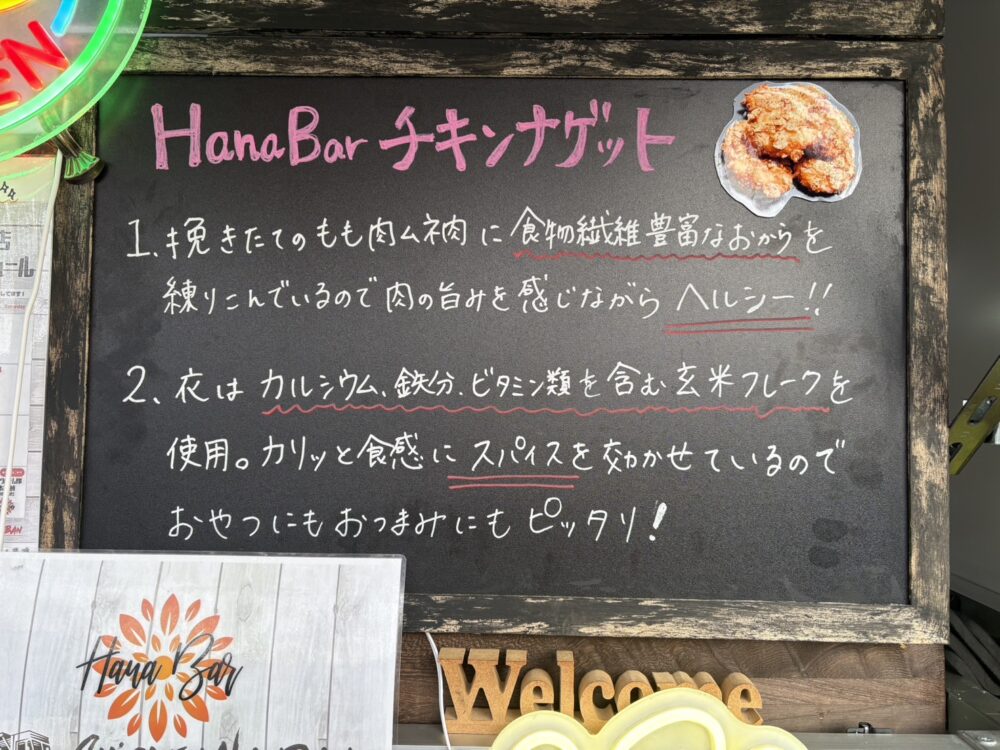 EN
HanaBar チキンナゲット
1. 挽きたてのもも肉ムネ肉に食物繊維豊富なおからを
練りこんでいるので肉の旨みを感じながらヘルシー!!
2、衣はカルシウム、鉄分、ビタミン類を含む玄米フレークを
使用。カリッと食感にスパイスを効かせているので
おやつにもおつまみにもピッタリ!
店
Hana Bar
Welcome